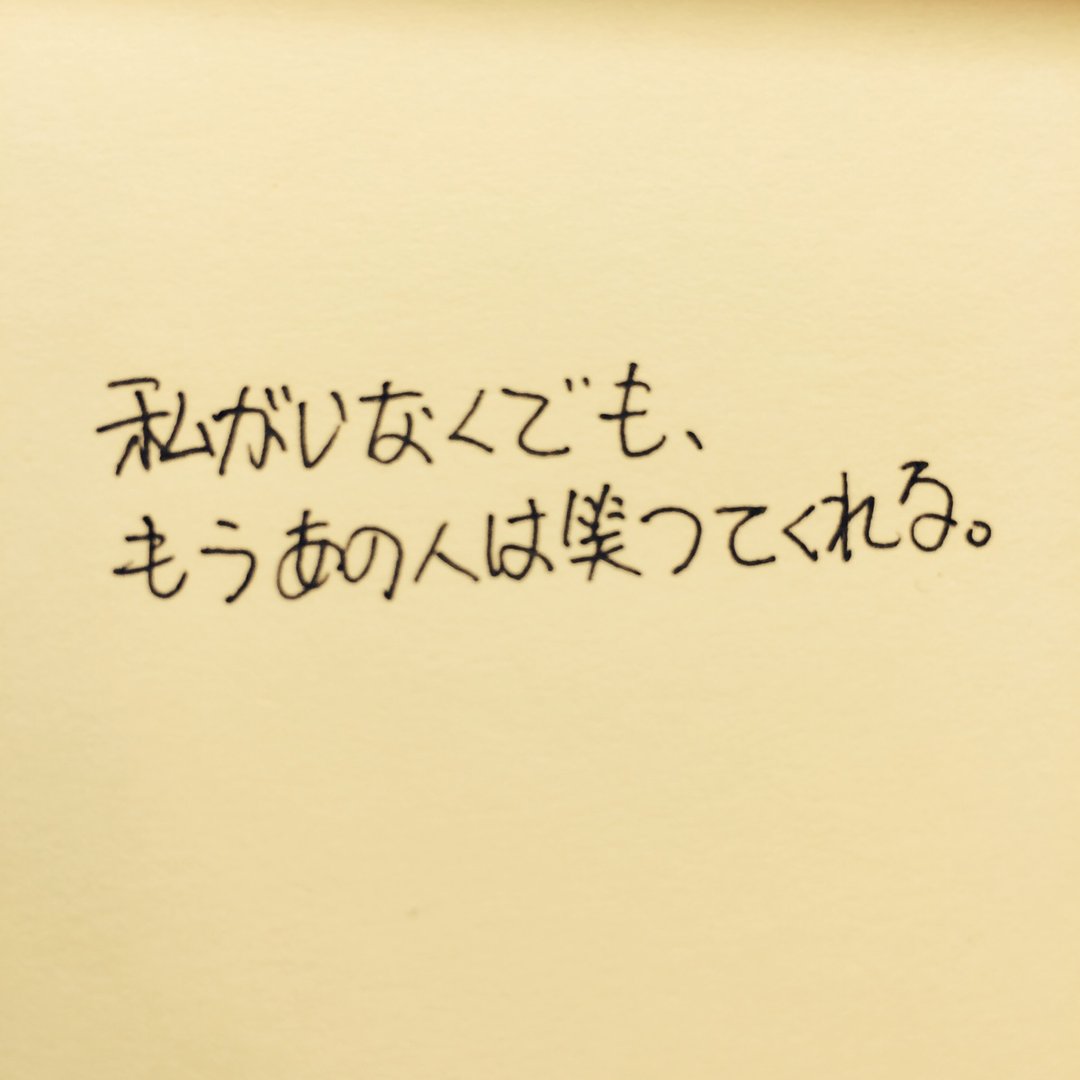 私がいなくでも、
もうあの人は僕つてくれる。